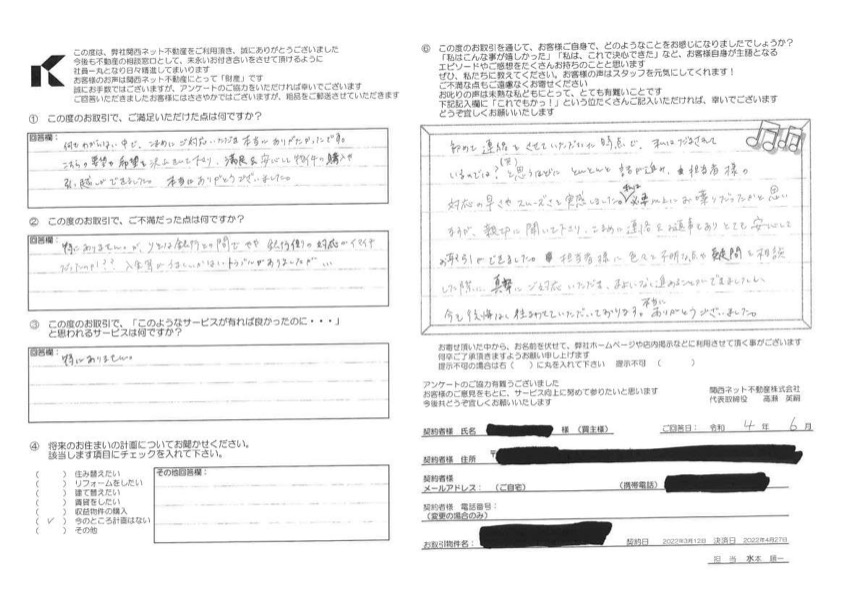 この度は、弊社関西ネット不動産をご利用頂き、誠にありがとうございました
今後も不動産の相談窓口として、末永いお付き合いをさせて頂けるように
社員一丸となり日々精進してまいります
お客様のお声は関西ネット不動産にとって「財産」です
誠にお手数ではございますが、アンケートのご協力をいただければ幸いでございます
ご回答いただきましたお客様にはささやかではございますが、粗品をご郵送させていただきます
① この度のお取引で、ご満足いただけた点は何ですか?
回答欄:
何もわからない中で、こまめにご対応いただき本当にありがたかったです。
こちらの希望の
満足&安心して物件の購入や
引っ越しができました。本当にありがとうございました。
② この度のお取引で、ご不満だった点は何ですか?
回答欄:
特にありませんが、
銀行側の対応がイマイチ
だったのが!?
トラブルがありましたが…
③ この度のお取引で、「このようなサービスが有れば良かったのに・・・」
と思われるサービスは何ですか?
回答欄:
特にありません。
④ 将来のお住まいの計画についてお聞かせください。
該当します項目にチェックを入れて下さい。
( ) 住み替えたい
( ) リフォームをしたい
( ) 建て替えたい
( ) 賃貸をしたい
( ) 収益物件の購入
( ✓ ) 今のところ計画はない
( ) その他
その他回答欄:
⑥ この度のお取引を通じて、お客様ご自身で、どのようなことをお感じになりましたでしょうか?
「私はこんな事が嬉しかった」「私は、これで決心できた」など、お客様自身が主語となる
エピソードやご感想をたくさんお持ちのことと思います
ぜひ、私たちに教えてください。お客様の声はスタッフを元気にしてくれます!
ご不満な点もご遠慮なくお寄せください
お叱りの声は未熟な私どもにとって、とても有難いことです
下記記入欄に「これでもか!」という位たくさんご記入いただければ、幸いでございます
どうぞ宜しくお願いいたします
初めて連絡をさせていただいた時点で、私はだまされて
いるのでは?(笑)と思うほどに とんとんと話が進み、担当者様の
対応の早さやスムーズさを実感しました。
ますが、親切に聞いて下さり、こまめに連絡
とても安心して
お取引ができました。担当者様に色々と不明な点や疑問を相談
した際に、真摯にご対応いただき、
今も後悔なく住まわせていただいております。本当にありがとうございました。
お寄せ頂いた中から、お名前を伏せて、弊社ホームページや店内掲示などに利用させて頂く事がございます
何卒ご了承頂きますようお願い申し上げます
提示不可の場合は右( )に丸を入れて下さい 提示不可 ( )
アンケートのご協力有難うございました
お客様のご意見をもとに、サービス向上に努めて参りたいと思います
今後共どうぞ宜しくお願いいたします
関西ネット不動産株式会社
代表取締役 高瀬 英嗣
契約者様 氏名 様 (買主様) ご回答日: 令和 4 年 6 月
契約者様 住所 〒
契約者様
メールアドレス: (ご自宅) (携帯電話)
契約者様 電話番号:
(変更の場合のみ)
お取引物件名: 契約日 2022年3月12日 決済日 2022年4月27日
担 当 水本